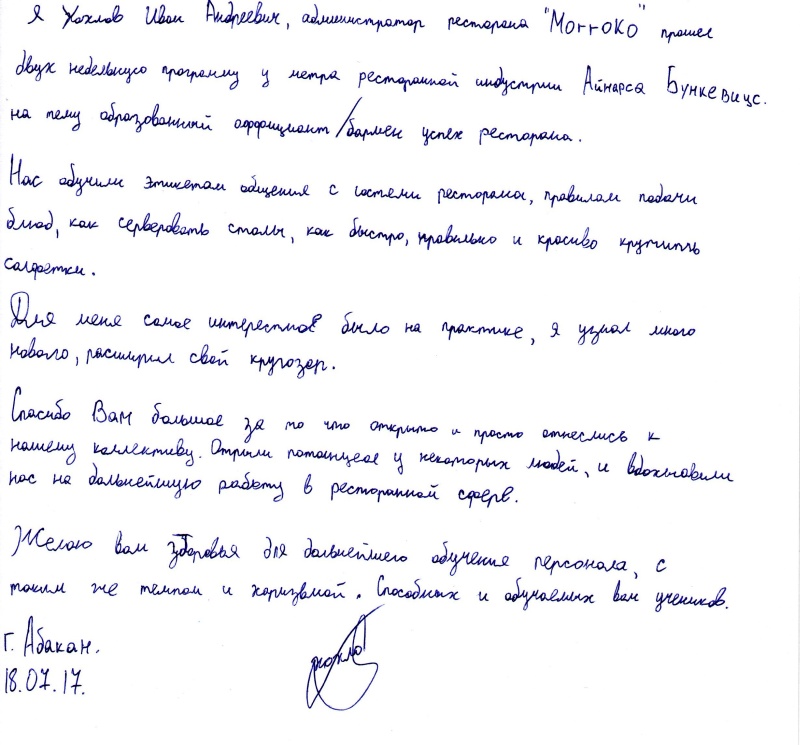 Я Хохлов Иван Андреевич, администратор ресторана "Morroko" прошел
двух недельную программу у метра ресторанной индустрии Айнарса Бункевицс.
на тему образованный оффициант/бармен успех ресторана.
Нас обучили этикетам общения с гостеми ресторана, правилам подачи
блюд, как серверовать столы, как быстро, правильно и красиво крутить
салфетки.
Для меня самое интерестное было на практике, я узнал много
нового, расширил свой кругозор.
Спасибо Вам большое за то что открыто и просто отнеслись к
нашему коллективу. Отрыли потанцеал у некоторых людей, и вдохнавили
нас на дальнейшую работу в ресторанной сферв.
Желаю вам здоровья для дальнейшего обучение персонала, с
таким же темпом и харизмой. Способных и обучаемых вам учеников.
г. Абакан.
18.07.17.